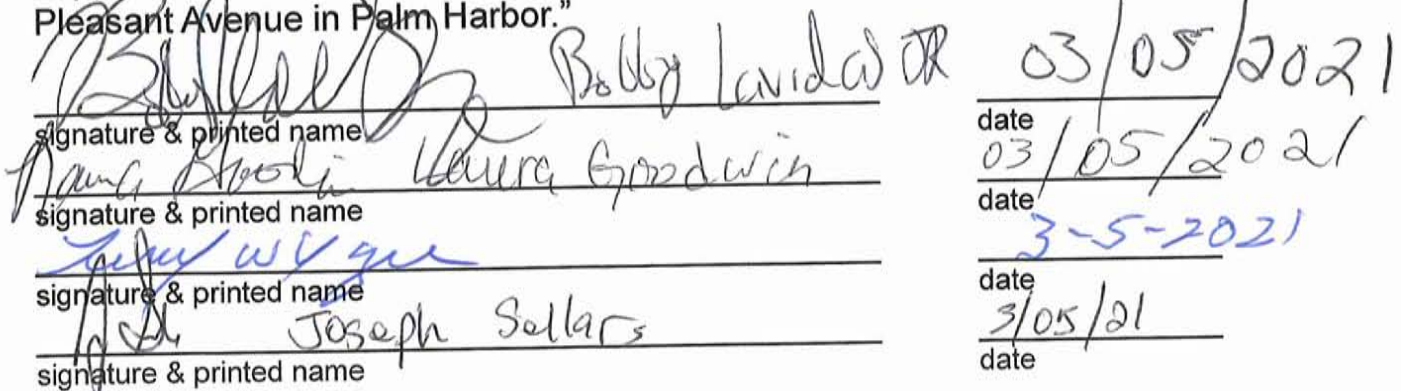 Pleasant Avenue in Palm Harbor.”
Bobby Lavidas JR 03/05/2021
signature & printed name date
Laura Goodwin 03/05/2021
signature & printed name date
3-5-2021
signature & printed name date
Joseph Sellars 3/05/21
signature & printed name date